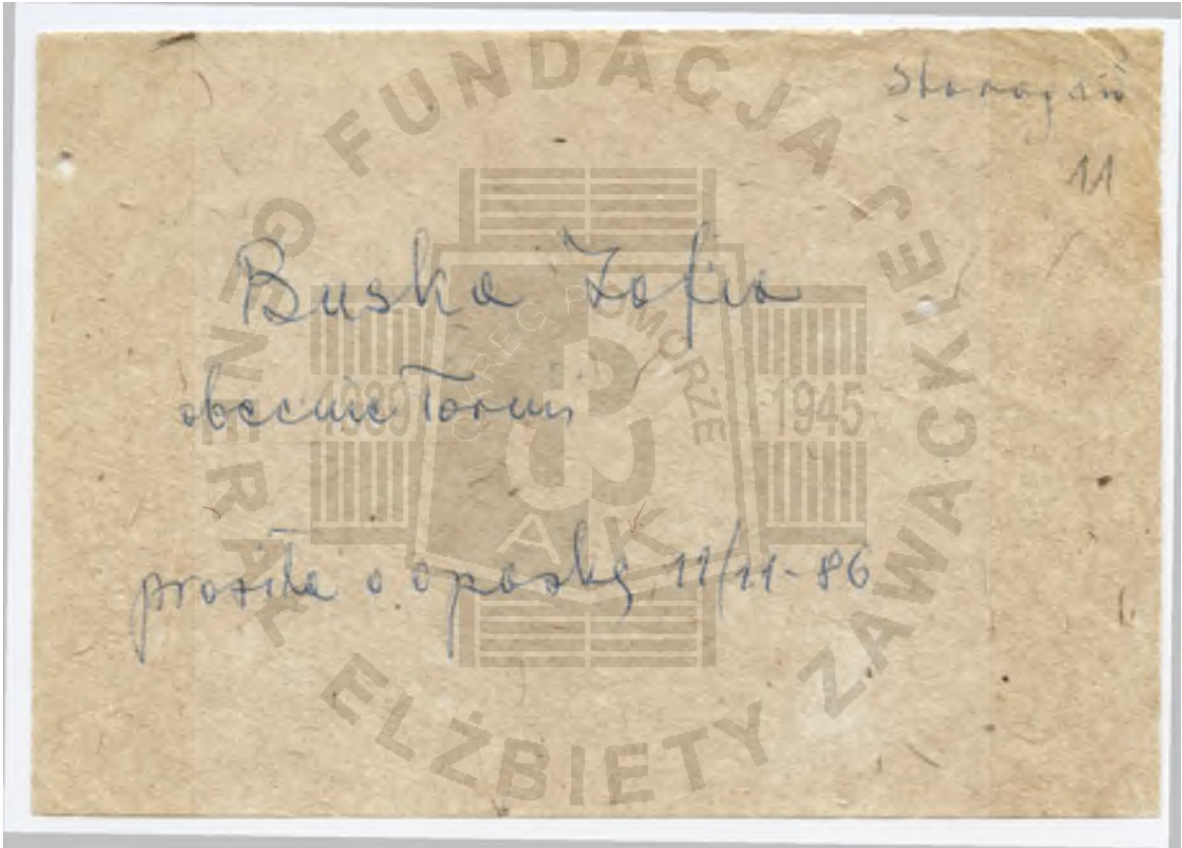 Starogard
11
Buska Zofia
obecnie Toruń
prosiła o opaskę 11/11-86
FUNDACJA GENERAŁ ELŻBIETY ZAWACKIEJ
OKRĘG POMORZE
1939 1945
AK